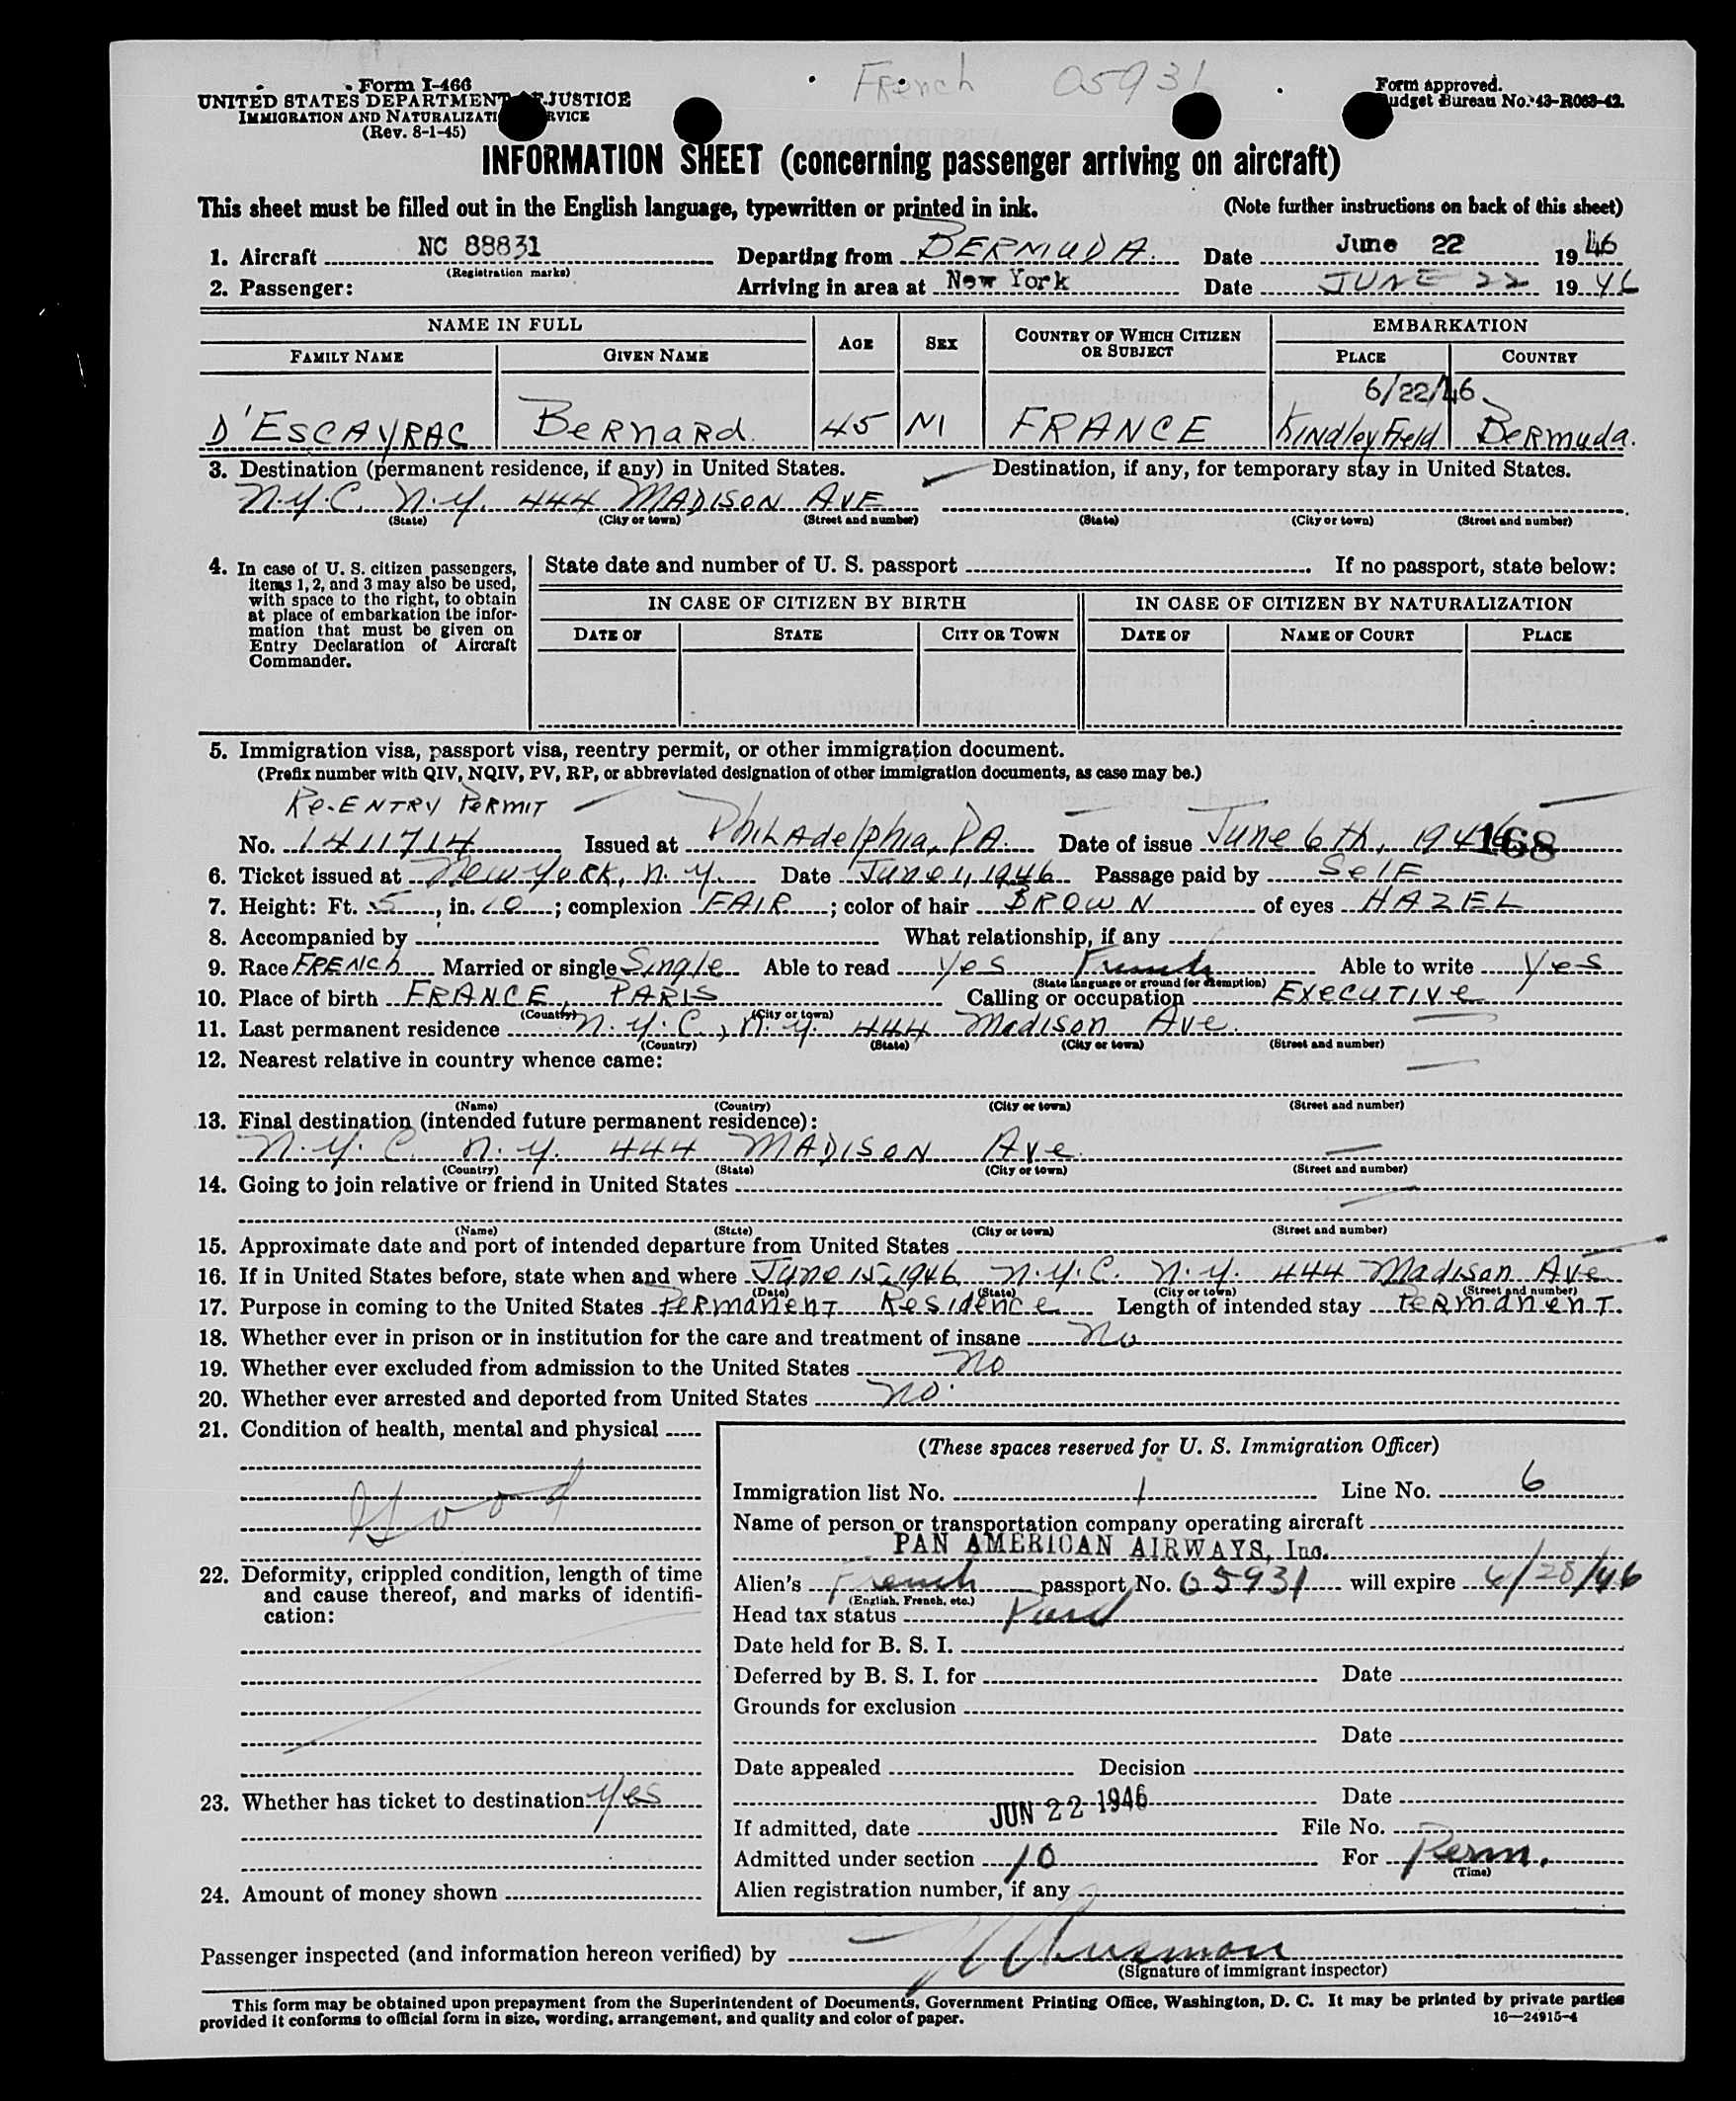 French 05931
Form I-466
UNITED STATES DEPARTMENT OF JUSTICE
IMMIGRATION AND NATURALIZATION SERVICE
(Rev. 8-1-45)
Form approved.
Budget Bureau No. 43-R063-42.
INFORMATION SHEET (concerning passenger arriving on aircraft)
This sheet must be filled out in the English language, typewritten or printed in ink. (Note further instructions on back of this sheet)
1. Aircraft NC 88831 Departing from BERMUDA. Date June 22 1946
(Registration marks)
2. Passenger: Arriving in area at New York Date JUNE 22 1946
NAME IN FULL AGE SEX COUNTRY OF WHICH CITIZEN OR SUBJECT EMBARKATION
FAMILY NAME GIVEN NAME PLACE COUNTRY
6/22/46
D'ESCAYRAC BERNARD 45 M FRANCE Kindley Field Bermuda.
3. Destination (permanent residence, if any) in United States. Destination, if any, for temporary stay in United States.
N.Y.C. N.Y. 444 MADISON AVE
(State) (City or town) (Street and number) (State) (City or town) (Street and number)
4. In case of U. S. citizen passengers, items 1, 2, and 3 may also be used, with space to the right, to obtain at place of embarkation the information that must be given on Entry Declaration of Aircraft Commander.
State date and number of U. S. passport If no passport, state below:
IN CASE OF CITIZEN BY BIRTH IN CASE OF CITIZEN BY NATURALIZATION
DATE OF STATE CITY OR TOWN DATE OF NAME OF COURT PLACE
5. Immigration visa, passport visa, reentry permit, or other immigration document.
(Prefix number with QIV, NQIV, PV, RP, or abbreviated designation of other immigration documents, as case may be.)
Re-ENTRY PERMIT
No. 1411714 Issued at PhiLAdelphia, PA. Date of issue June 6th, 1946 168
6. Ticket issued at New York, N.Y. Date June 1, 1946 Passage paid by Self
7. Height: Ft. 5, in. 10; complexion FAIR; color of hair BROWN of eyes HAZEL
8. Accompanied by What relationship, if any
9. Race FRENCH Married or single Single Able to read yes French Able to write Yes
(State language or ground for exemption)
10. Place of birth FRANCE, PARIS Calling or occupation EXECUTIVE
(Country) (City or town)
11. Last permanent residence N.Y.C., N.Y. 444 Madison Ave.
(Country) (State) (City or town) (Street and number)
12. Nearest relative in country whence came:
(Name) (Country) (City or town) (Street and number)
13. Final destination (intended future permanent residence):
N.Y.C. N.Y. 444 MADISON Ave.
(Country) (State) (City or town) (Street and number)
14. Going to join relative or friend in United States
(Name) (State) (City or town) (Street and number)
15. Approximate date and port of intended departure from United States
16. If in United States before, state when and where June 15, 1946 N.Y.C. N.Y. 444 Madison Ave
(Date) (State) (City or town) (Street and number)
17. Purpose in coming to the United States PERMANENT Residence Length of intended stay PERMANENT.
18. Whether ever in prison or in institution for the care and treatment of insane No
19. Whether ever excluded from admission to the United States No
20. Whether ever arrested and deported from United States No.
21. Condition of health, mental and physical
Good
22. Deformity, crippled condition, length of time and cause thereof, and marks of identification:
23. Whether has ticket to destination yes
24. Amount of money shown
(These spaces reserved for U. S. Immigration Officer)
Immigration list No. 1 Line No. 6
Name of person or transportation company operating aircraft
PAN AMERICAN AIRWAYS, Inc.
Alien's French passport No. 05931 will expire 6/28/46
(English, French, etc.)
Head tax status Paid
Date held for B. S. I.
Deferred by B. S. I. for Date
Grounds for exclusion
Date
Date appealed Decision
Date
If admitted, date JUN 22 1946 File No.
Admitted under section 10 For Perm.
(Time)
Alien registration number, if any
Passenger inspected (and information hereon verified) by
(Signature of immigrant inspector)
This form may be obtained upon prepayment from the Superintendent of Documents, Government Printing Office, Washington, D. C. It may be printed by private parties
provided it conforms to official form in size, wording, arrangement, and quality and color of paper. 16—24915-4